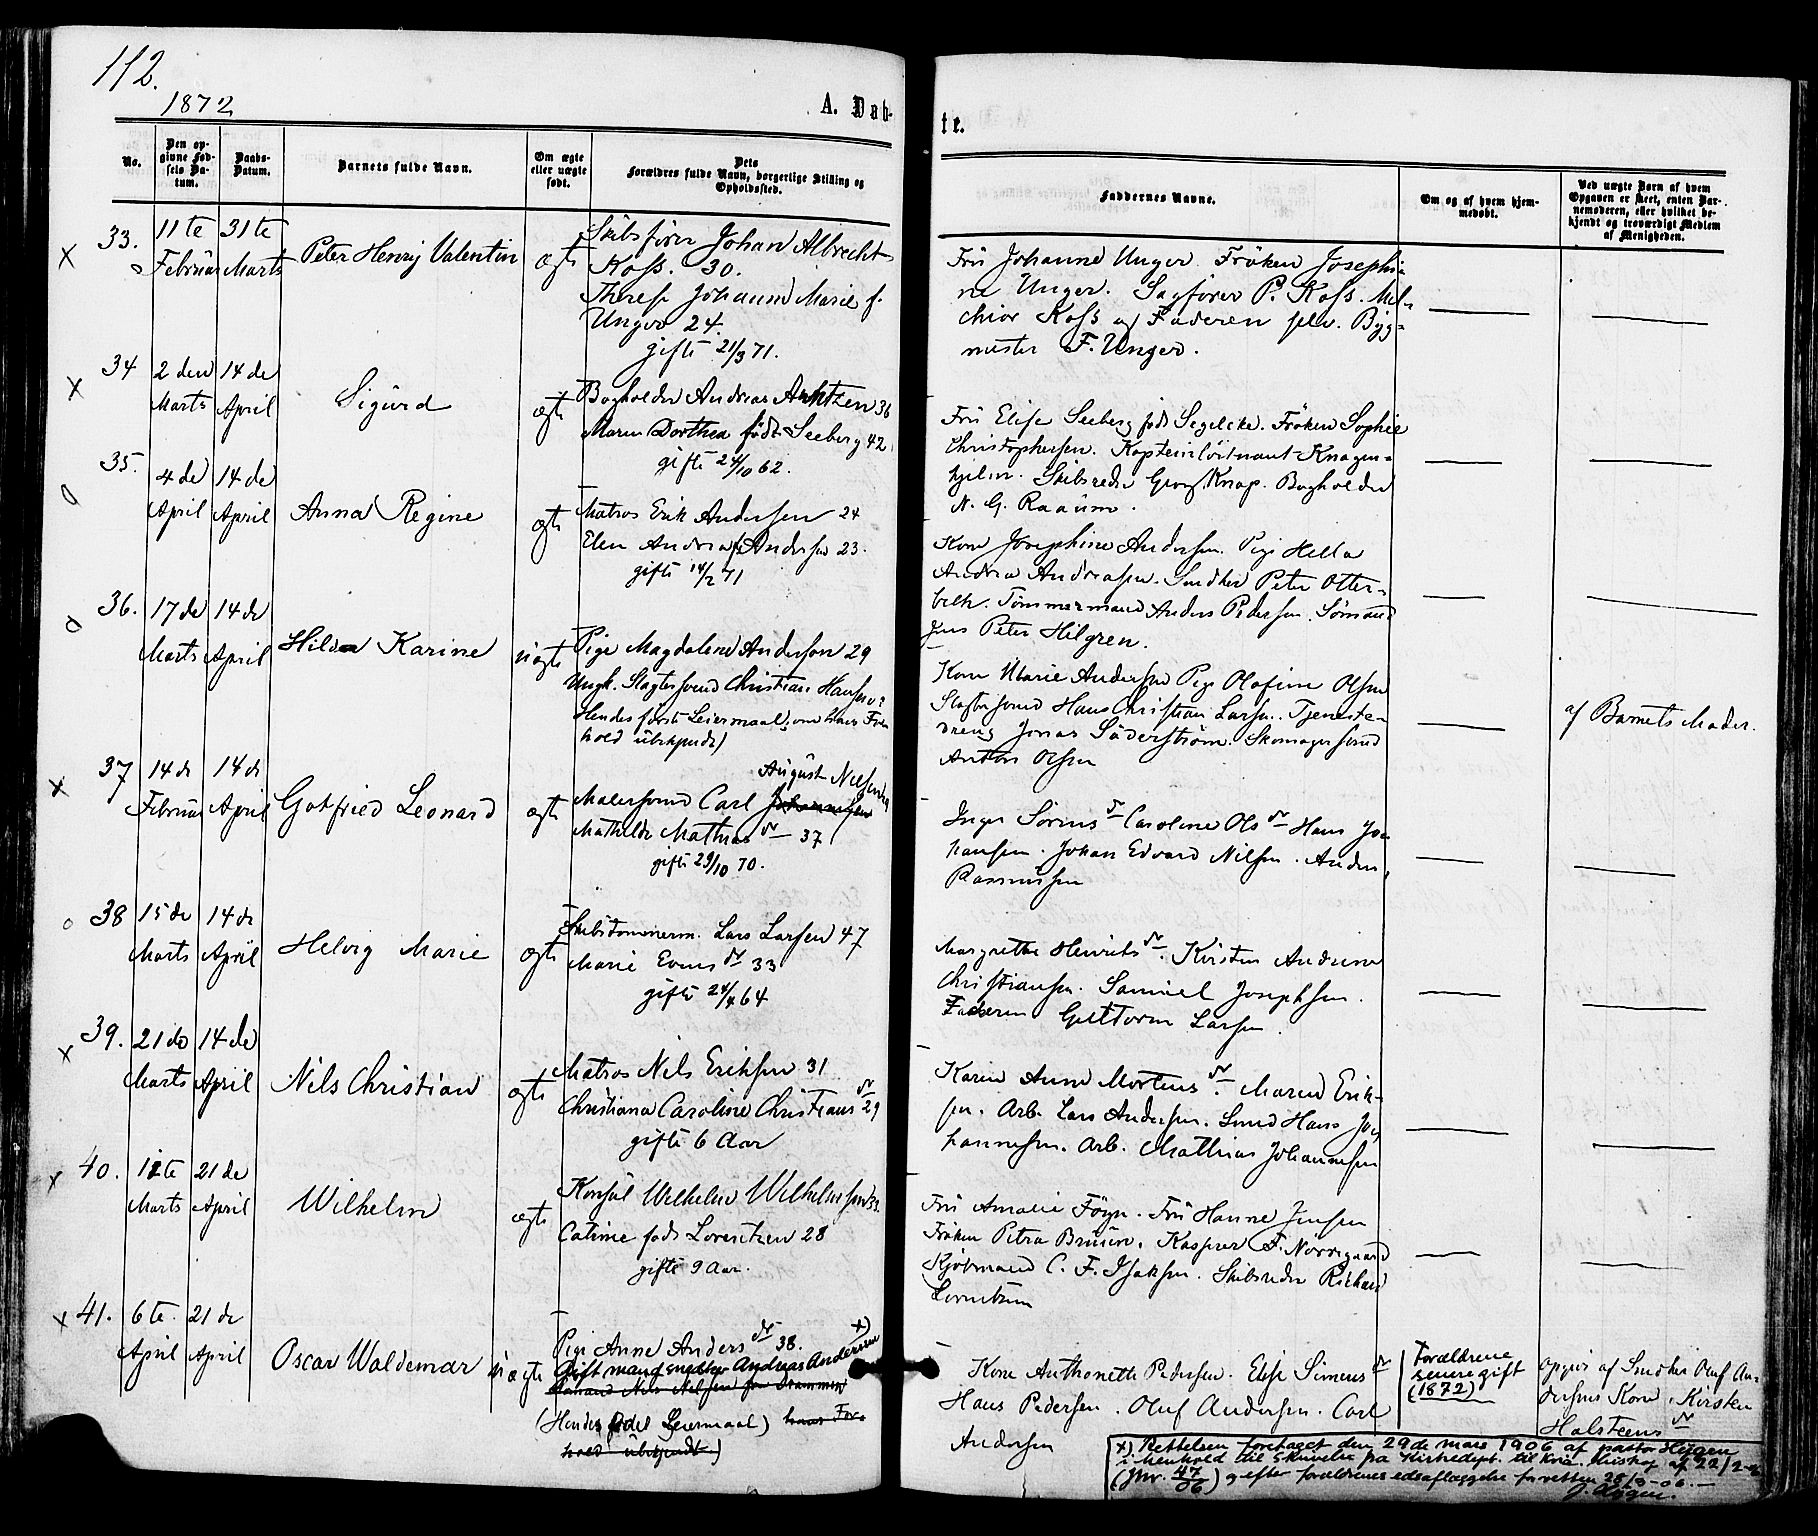 112.
1872
A. Døb-
te.
No.
Den op-
givne Fød-
sels Da-
tum.
Daabs-
Datum.
Barnets fulde Navn.
Om ægte
eller uægte
født.
Dets
Forældres fulde Navn, borgerlige Stilling og
Opholdssted.
Faddernes Navne.
Om og af hvem hjem-
medøbt.
Ved uægte Børn af hvem
Opgaven er skeet, enten Bar-
nemoderen, eller hvilket be-
kjendt og troværdigt Medlem
af Menigheden.
33.
11te
Februar
31te
Marts
Peter Henrij Valentin
ægte
Skibsfører Johan Albrecht
Koss. 30.
Therese Johanne Marie f.
Unger 24.
gifte 21/3 71.
Fru Johanne Unger. Frøken Josephi-
ne Unger. Sagfører P. Koss. Mel-
chior Koss og Faderen selv. Byg-
mester F. Unger.
34
2den
Marts
14de
April
Sigurd
ægte
Bogholder Andreas Arntzen 36
Maren Dorthea født Seeberg 42.
gifte 24/10 62.
Frü Elise Seeberg født Segelcke. Frøken Sophie
Christophersen. Kapteinløitnant Knagen-
hjelm. Skibsreder Georg Knap. Bogholder
N. G. Raaum.
35.
4de
April
14de
April
Anna Regine
ægte
Matros Erik Andersen 24
Elen Andrea Andersen 23.
gifte 14/2 71
Kone Josephine Andersen. Pige Hella
Andrea Andreasen. Snedker Peter Otter-
bek. Tømmermand Anders Pedersen. Sømand
Jens Peter Hilgren.
36.
17de
Marts
14de
April
Hilda Karine
uægte
Pige Magdalene Andersen 29
Ungk. Slagtersvend Christian Hansen
Hendes første Leiermaal, om hans For-
hold ubekjendt)
Kone Marie Andersen Pige Olofine Olsen
Slagtersvend Hans Christian Larsen. Tjeneste-
dreng Jonas Søderstrøm. Skomagersvend
Anton Olsen
af Barnets Moder.
37
14de
Februar
14de
April
Gotfried Leonard
ægte
August Nilsen
Malersvend Carl Johannesen
Mathilde Mathias dr 37
gifte 29/10 70.
Inger Sørens dr Caroline Ols dr Hans Jo-
hansen. Johan Edvard Nilsen. Anders
Rasmussen
38
15de
Marts
14de
April
Helvig Marie
ægte
Skibstømmerm. Lars Larsen 47
Marie Evens dr 33
gifte 24/4 64
Margrethe Henriks dr. Kirsten Andrine
Christiansen. Samuel Josephsen.
Faderen Guttorm Larsen.
39.
21de
Marts
14de
April
Nils Christian
ægte
Matros Nils Eriksen 31
Christiana Caroline Christians dr 29
gifte 6 Aar
Karen Anne Mortens dr. Maren Erik-
sen. Arb. Lars Andersen. Smed Hans Jo-
hannesen. Arb. Mathias Johannesen
40.
12te
Marts
21de
April
Wilhelm
ægte
Konsul Wilhelm Wilhelmsen 32.
Catine født Lorentzen 28
gifte 9 Aar.
Frü Amalie Föyn. Frü Hanne Jensen
Frøken Petra Bruun. Kasserer F. Nørregaard
Kjøbmand C. F. Isaksen. Skibsreder Richard
Lorentzen
41.
6te
April
21de
April
Oscar Waldemar
uægte
Pige Anne Anders dr 38. x)
Gift mand snedker Andreas Andersen
Sømand Nils Nilsen fra Drammen
(Hendes første Leiermaal) hans For-
hold ubekjendt)
Kone Anthonette Pedersen. Elise Simens dr
Hans Pedersen. Oluf Andersen. Carl
Andersen
Forældrene
senere gift
(1872)
opgivet af Snedker Oluf An-
dersens Kone, Kirsten
Halsteens dr
x) Rettelsen foretaget den 29de mars 1906 af pastor Hygen
i henhold til skrivelse fra Kirkedept. til Kria. Biskop af 22/2-06
(Jnr. 47/06) og efter forældrenes edsaflæggelse for retten 28/3-06.—
J. Hygen.